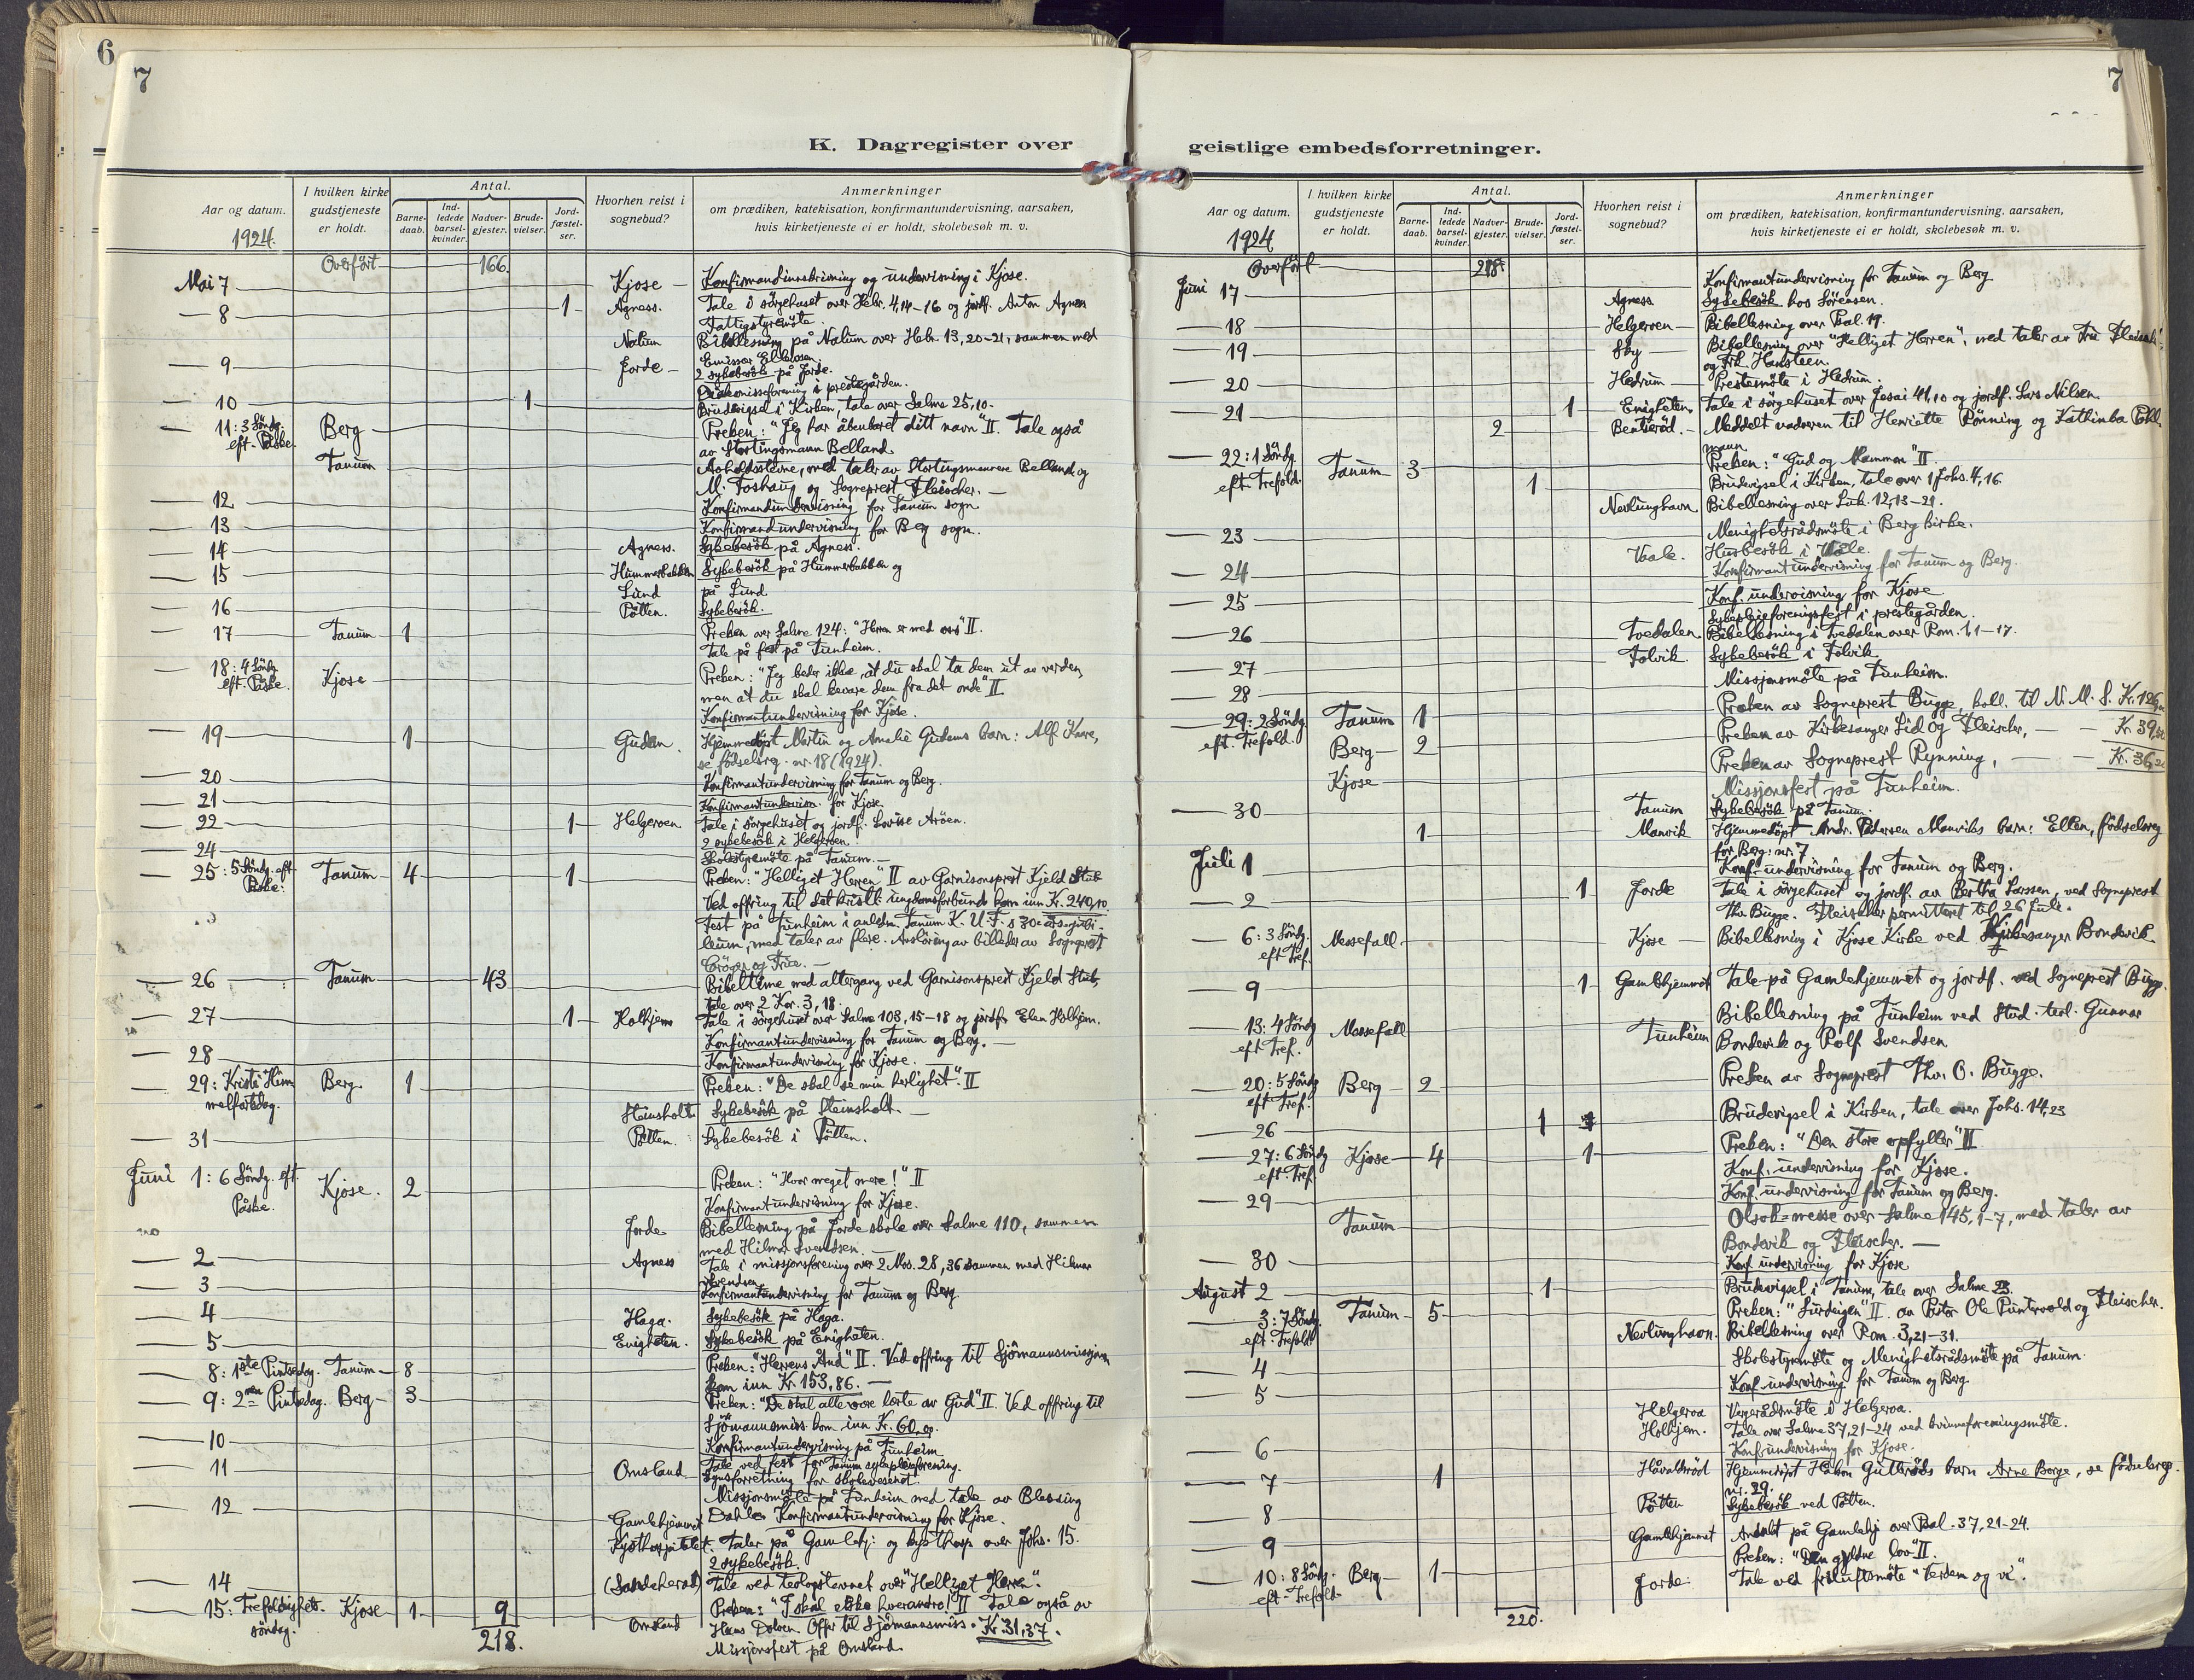 6
7
K. Dagregister over
Aar og datum. 1924.
I hvilken kirke gudstjeneste er holdt.
Antal.
Barnedaab.
Indledede barselkvinder.
Nadvergjester.
Brudevielser.
Jordfæstelser.
Hvorhen reist i sognebud?
Anmerkninger
om prædiken, katekisation, konfirmantundervisning, aarsaken,
hvis kirketjeneste ei er holdt, skolebesøk m. v.
Overført 166.
Mai 7 Kjose Konfirmandinnskrivning og undervisning i Kjose.
8 1 Agness. Tale i sörgehuset over Hebr. 4,14-16 og jordf. Anton Agnes
Fattigstyremöte.
Nalum Bibellesning på Nalum over Hebr. 13,20-21, sammen med
Emissær Ellefsen.
9 Jorde 2 sykebesök på Jorde.
i prestegården.
10 1 Brudevigsel i Kirken, tale over Salme 25,10.
11: 3 Söndg. eft. Påske. Berg Preken: "Jeg har åbenbaret ditt navn" II. Tale også
av Stortingsmann Belland.
Tanum Avholdsstevne, med taler av Stortingsmennene Belland og
M. Foshaug og Sogneprest Fleischer.
12 Konfirmandundervisning for Tanum sogn
13 Konfirmandundervisning for Berg sogn.
14 Agness. Sykebesök på Agness.
15 Hummerbakken Sykebesök på Hummerbakken og
Lund på Lund
16 Pölten. Sykebesök.
17 Tanum 1 Preken over Salme 124: "Herren er med oss" II.
Tale på fest på Tunheim.
18: 4 Söndg. eft. Påske. Kjose Preken: "Jeg beder ikke, at du skal ta dem ut av verden,
men at du skal bevare dem fra det onde" II
Konfirmantundervisning for Kjose.
19 1 Gudem. Hjemmedöpt Martin og Amalie Gudems barn: Alf Kaare,
se födselsreg. nr. 18 (1924).
20 Konfirmantundervisning for Tanum og Berg.
21 Konfirmantundervisn. for Kjose.
22 1 Helgeroen. Tale i sörgehuset og jordf. Lovise Aröen.
2 sykebesök i Helgeroen.
24 Skolestyremöte på Tanum.
25: 5 Söndg. eft. Påske: Tanum 4 1 Preken: "Helliget Herren" II av Garnisonsprest Kjeld Stub
Ved offring til det kristl. ungdomsforbund kom inn Kr. 240,10.
Fest på Tunheim i anledn. Tanum K. U. F.s 30-årsjubi-
leum, med taler av flere. Avslöring av billeder av Sogneprest
Cröger og Frue.
26 Tanum 43 Bibeltime med altergang ved Garnisonsprest Kjeld Stub,
tale over 2 Kor. 3,18.
27 1 Holhjem Tale i sörgehuset over Salme 103,15-18 og jordf. Elen Holhjem.
Konfirmantundervisning for Tanum og Berg.
28 Konfirmantundervisning for Kjose.
29: Kristi Himmelfartsdag. Berg. 1 Preken: "De skal se min herlighet". II
Steinsholt Sykebesök på Steinsholt.
31 Pölten. Sykebesök i Pölten.
Juni 1: 6 Söndg. eft. Påske. Kjose. 2 Preken: "Hvor meget mere!" II
Konfirmantundervisning for Kjose.
Jorde Bibellesning på Jorde skole over Salme 110, sammen
med Hilmar Svendsen.
2 Agness Tale i missjonsforening over 2 Mos. 28,36 sammen med Hilmar
Svendsen.
3 Konfirmantundervisning for Tanum og Berg.
4 Haga. Sykebesök på Haga.
5 Enigheten. Sykebesök på Enigheten.
8: 1ste Pintsedag. Tanum 8 Preken: "Herrens Ånd" II. Ved offring til Sjömannsmissjonen
kom inn Kr. 153,86.
9: 2nen Pintsedag. Berg 3 Preken: "De skal alle være lærte av Gud" II. Ved offring til
Sjömannsmiss. kom inn Kr. 60,00.
10 Konfirmantundervisning på Tunheim
Tale ved fest for Tanum sykepleieforening.
11 Omsland Synsforretning for skolevesenet.
Missjonsmöte på Tunheim med tale av Blessing
12 Dahle. Konfirmantundervisning for Kjose.
Gamlehjemmet
Kysthospitalet. Taler på Gamlehj. og kysthosp. over Johs. 15.
2 sykebesök.
14 (Sandeherad) Tale ved teologstevnet over "Helliget Herren".
15: Trefoldighets-söndag. Kjose 1 9 Preken: "I skal elske hverandre!" II Tale også av
Omsland Hans Dolven. Offer til Sjömannsmiss. Kr. 31,37.
218. Missjonsfest på Omsland.
7
geistlige embedsforretninger.
Aar og datum. 1924
I hvilken kirke gudstjeneste er holdt.
Antal.
Barnedaab.
Indledede barselkvinder.
Nadvergjester.
Brudevielser.
Jordfæstelser.
Hvorhen reist i sognebud?
Anmerkninger
om prædiken, katekisation, konfirmantundervisning, aarsaken,
hvis kirketjeneste ei er holdt, skolebesøk m. v.
Overført 218.
Juni 17 Konfirmantundervisning for Tanum og Berg
Agness Sykebesök hos Sörensen.
18 Helgeroen Bibellesning over Sal. 19.
19 Sky Bibellesning over "Helliget Herren", med taler av Fru Fleischer
og Frk. Hansteen.
20 Hedrum Prestemöte i Hedrum.
21 1 Enigheten. Tale i sörgehuset over Jesai 41,10 og jordf. Lars Nilsen.
2 Bentseröd. Meddelt nadveren til Henriette Rönning og Kathinka
22: 1 Söndg. eft. Trefold. Tanum 3 Preken: "Gud og Mammon" II.
1 Brudevigsel i Kirken, tale over 1 Johs. 4,16
Nevlunghavn Bibellesning over Luk. 12,13-21.
23 Menighetsrådsmöte i Berg kirke.
Vaale. Husbesök i Våle.
24 Konfirmantundervisning for Tanum og Berg.
25 Konf. undervisning for Kjose
Sykepleieforeningsfest i prestegården.
26 Tvedalen Bibellesning i Tvedalen over Rom. 1,1-17.
Folvik. Sykebesök i Folvik.
27 Missjonsmöte på Tunheim.
28
29: 2 Söndg. eft. Trefold. Tanum 1 Preken av Sogneprest Bugge, koll. til N. M. S. Kr. 126,
Berg 2 Preken av Kirkesanger Lid og Fleischer, Kr 39,
Kjose Preken av Sogneprest Rynning, Kr. 36,
Missjonsfest på Tunheim.
30 Tanum Sykebesök på Tanum.
1 Manvik Hjemmedöpt Andr. Pedersen Manviks barn: Ellen, födselsreg
for Berg: nr. 7
Juli 1 Konf.-undervisning for Tanum og Berg.
2 1 Jorde Tale i sörgehuset og jordf. av Bertha Larssen, ved Sogneprest
Thv. Bugge. Fleischer permittert til 26 Juli.
6: 3 Söndg. eft. Tref. Messefall Kjose Bibellesning i Kjose Kirke ved Kirkesanger Bondevik.
9 1 Gamlehjemmet Tale på Gamlehjemmet og jordf. ved Sogneprest Bugge.
13: 4 Söndg. eft. Tref. Messefall Tunheim Bibellesning på Tunheim ved Stud. teol. Gunnar
Bondevik og Rolf Svendsen
20: 5 Söndg. eft. Tref. Berg 2 Preken av Sogneprest Thv. O. Bugge.
26 1 Brudevigsel i Kirken, tale over Johs. 14,23
27: 6 Söndg. eft. Tref. Kjose 4 1 Preken: "Den store opfyller" II
Konf.-undervisning for Kjose.
29 Konf. undervisning for Tanum og Berg.
Tanum Olsok-messe over Salme 145,1-7, med taler av
Bondevik og Fleischer.
30 Konf. undervisning for Kjose
August 2 1 Brudevigsel i Tanum, tale over Salme 23.
3: 7 Söndg. eft. Trefold. Tanum 5 Preken: "Surdeigen" II. av Pastor Ole Puntervold og Fleischer.
Nevlunghavn. Bibellesning over Rom. 3,21-31.
4 Skolestyremöte og Menighetsrådsmöte på Tanum.
5 Konf.-undervisning for Tanum og Berg.
Helgeroa Vergerådsmöte i Helgeroa.
Holhjem. Tale over Salme 37,21-24 ved kvinneforeningsmöte.
6 Konf-undervisning for Kjose.
7 1 Håvaldsröd Hjemmedöpt Håkon Gulliröds barn Arne Borge, se födselsreg.
nr. 29.
8 Pölten Sykebesök ved Pölten.
9 Gamlehjemmet Andakt på Gamlehj. over Sal. 37,21-24.
10: 8 Söndg. eft. Trefold. Berg 1 Preken: "Den gyldne lov" II.
Jorde. Tale ved friluftsmöte "Verden og vi".
220.